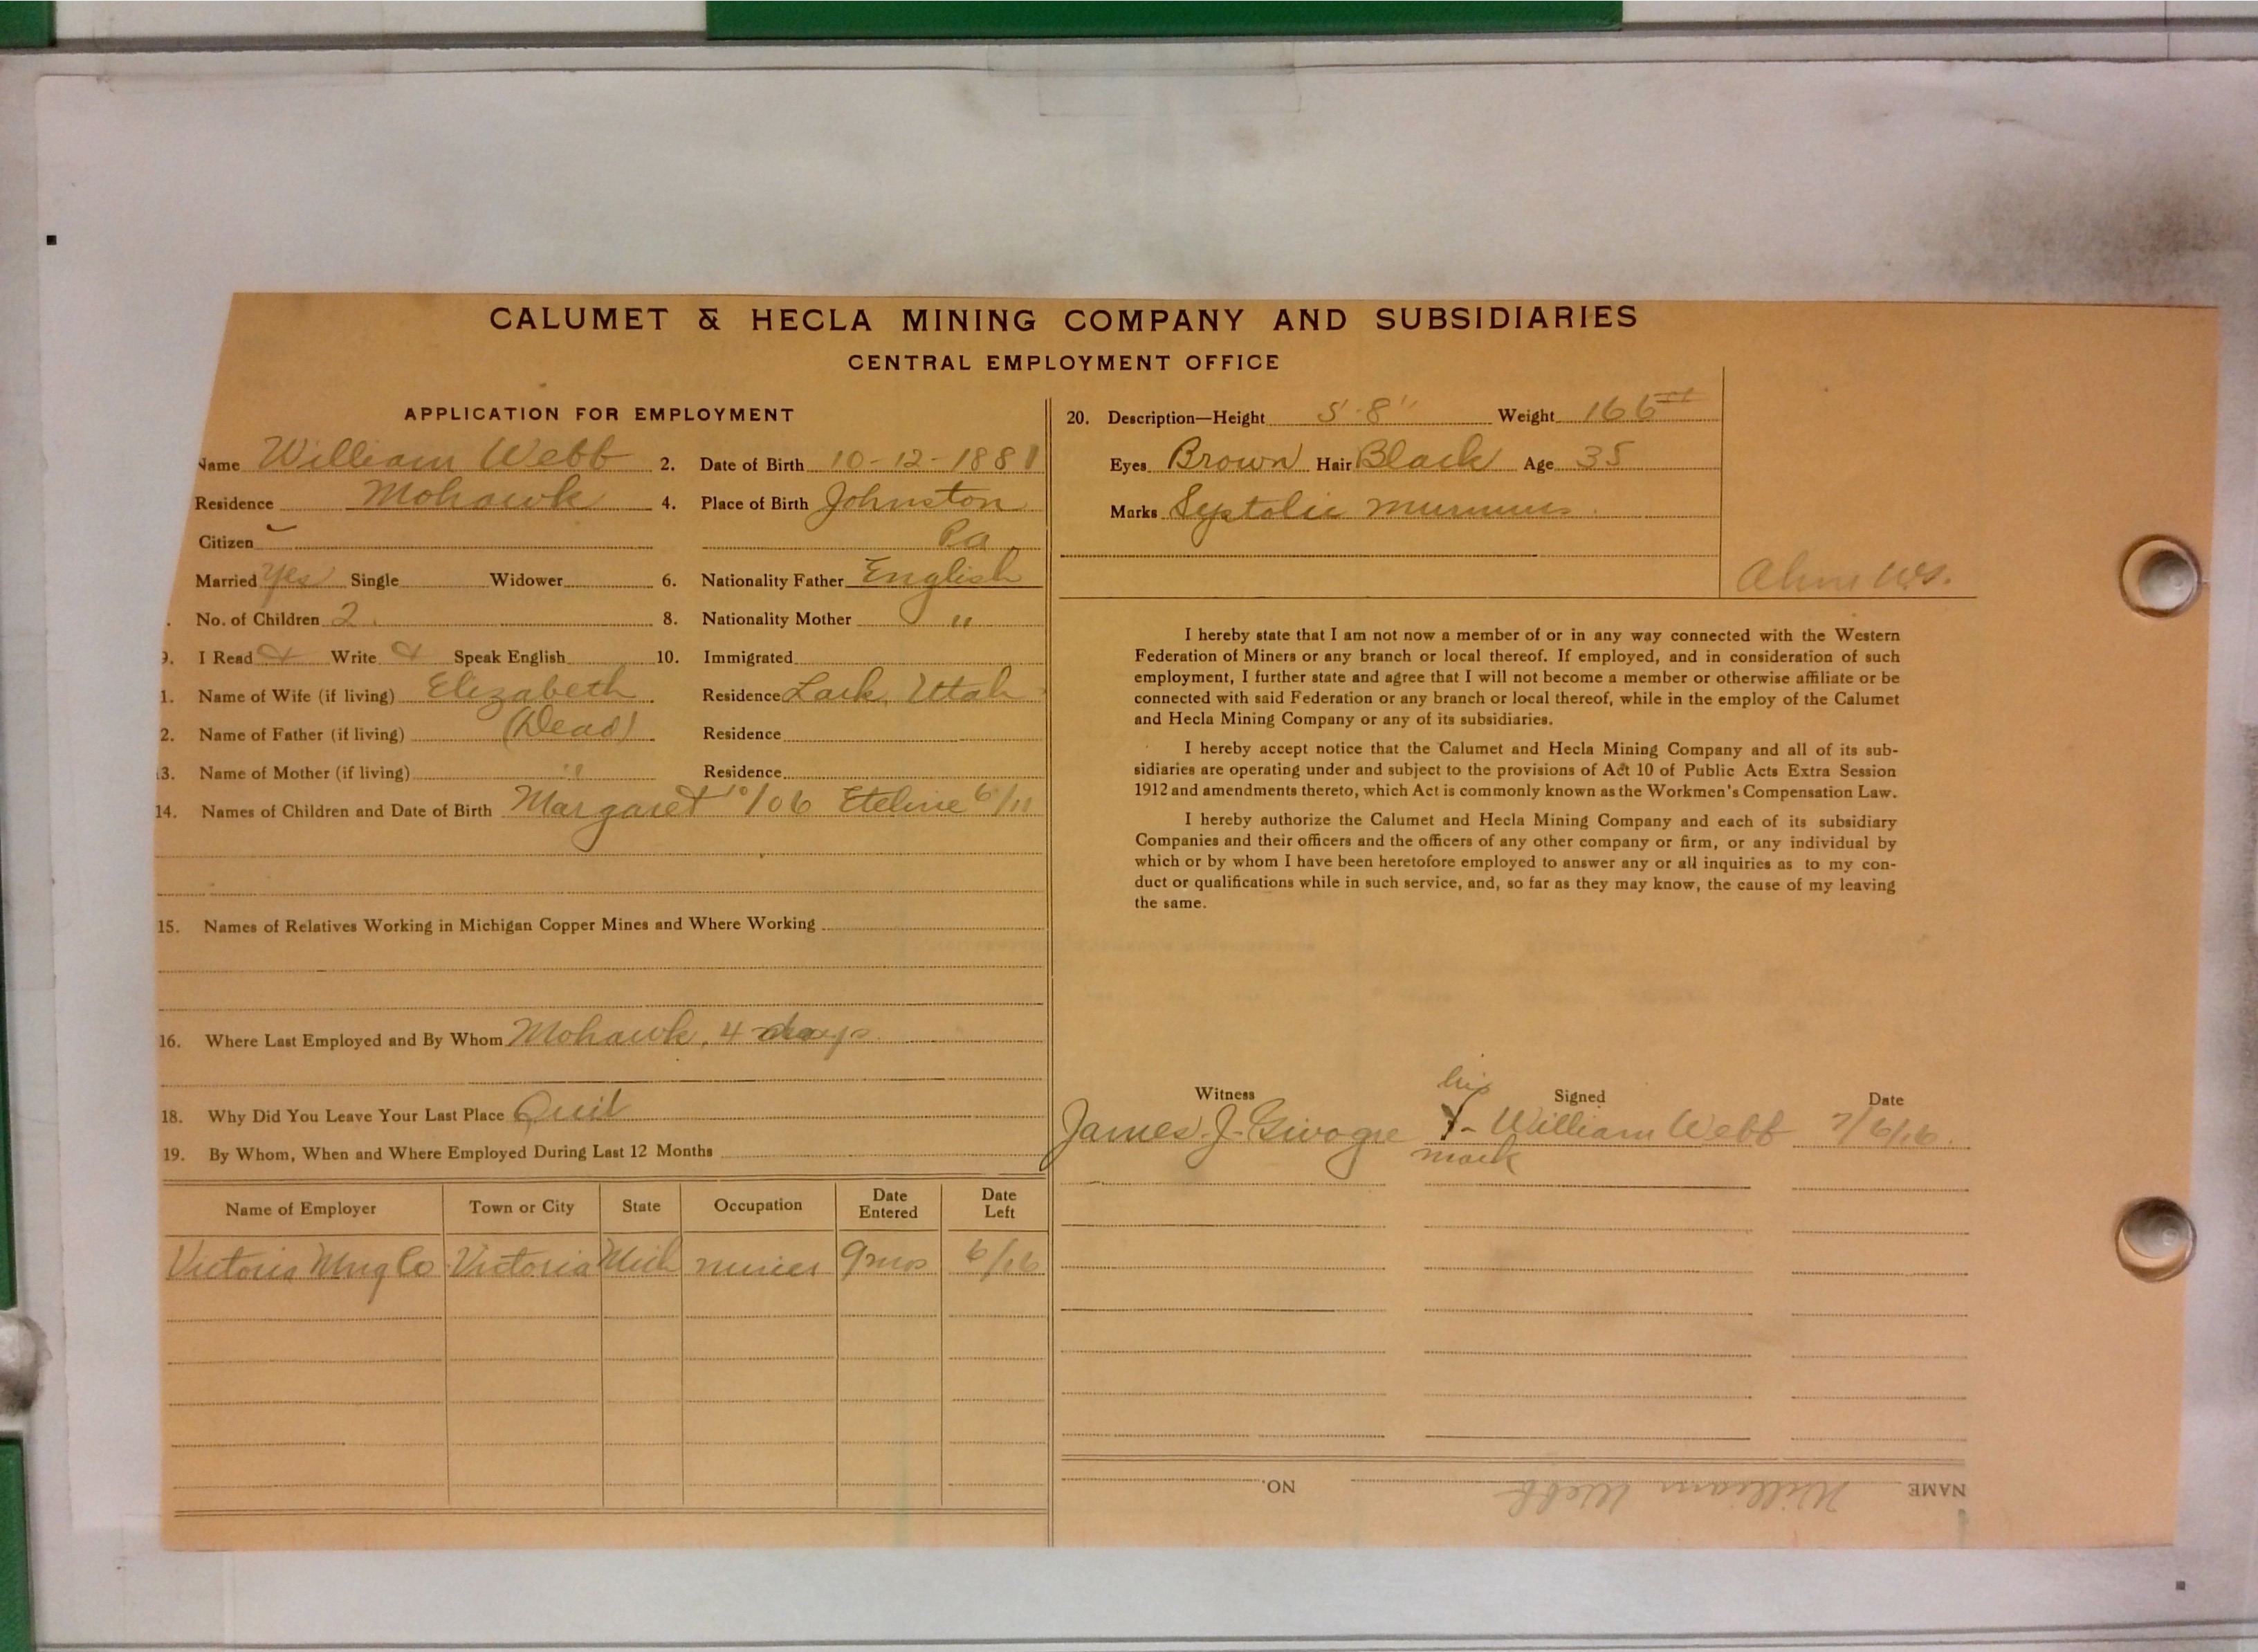 CALUMET & HECLA MINING COMPANY AND SUBSIDIARIES
CENTRAL EMPLOYMENT OFFICE
APPLICATION FOR EMPLOYMENT
Name William Webb 2. Date of Birth 10-12-1881
Residence Mohawk 4. Place of Birth Johnston
Citizen Pa
Married Yes Single Widower 6. Nationality Father English
No. of Children 2 8. Nationality Mother "
9. I Read & Write & Speak English 10. Immigrated
1. Name of Wife (if living) Elizabeth Residence Lark, Uttah
2. Name of Father (if living) (Dead) Residence
13. Name of Mother (if living) " Residence
14. Names of Children and Date of Birth Margaret 10/06 Eteline 6/11
15. Names of Relatives Working in Michigan Copper Mines and Where Working
16. Where Last Employed and By Whom Mohawk, 4 days
18. Why Did You Leave Your Last Place Quit
19. By Whom, When and Where Employed During Last 12 Months
Name of Employer Town or City State Occupation Date Entered Date Left
Victoria Mng Co Victoria Mich miner 9 mos 6/16
20. Description—Height 5'-8" Weight 166#
Eyes Brown Hair Black Age 35
Marks Systolic murmurs
I hereby state that I am not now a member of or in any way connected with the Western
Federation of Miners or any branch or local thereof. If employed, and in consideration of such
employment, I further state and agree that I will not become a member or otherwise affiliate or be
connected with said Federation or any branch or local thereof, while in the employ of the Calumet
and Hecla Mining Company or any of its subsidiaries.
I hereby accept notice that the Calumet and Hecla Mining Company and all of its sub-
sidiaries are operating under and subject to the provisions of Act 10 of Public Acts Extra Session
1912 and amendments thereto, which Act is commonly known as the Workmen's Compensation Law.
I hereby authorize the Calumet and Hecla Mining Company and each of its subsidiary
Companies and their officers and the officers of any other company or firm, or any individual by
which or by whom I have been heretofore employed to answer any or all inquiries as to my con-
duct or qualifications while in such service, and, so far as they may know, the cause of my leaving
the same.
Witness Signed Date
his
James J. William Webb 7/6/16
mark
NAME William Webb NO.